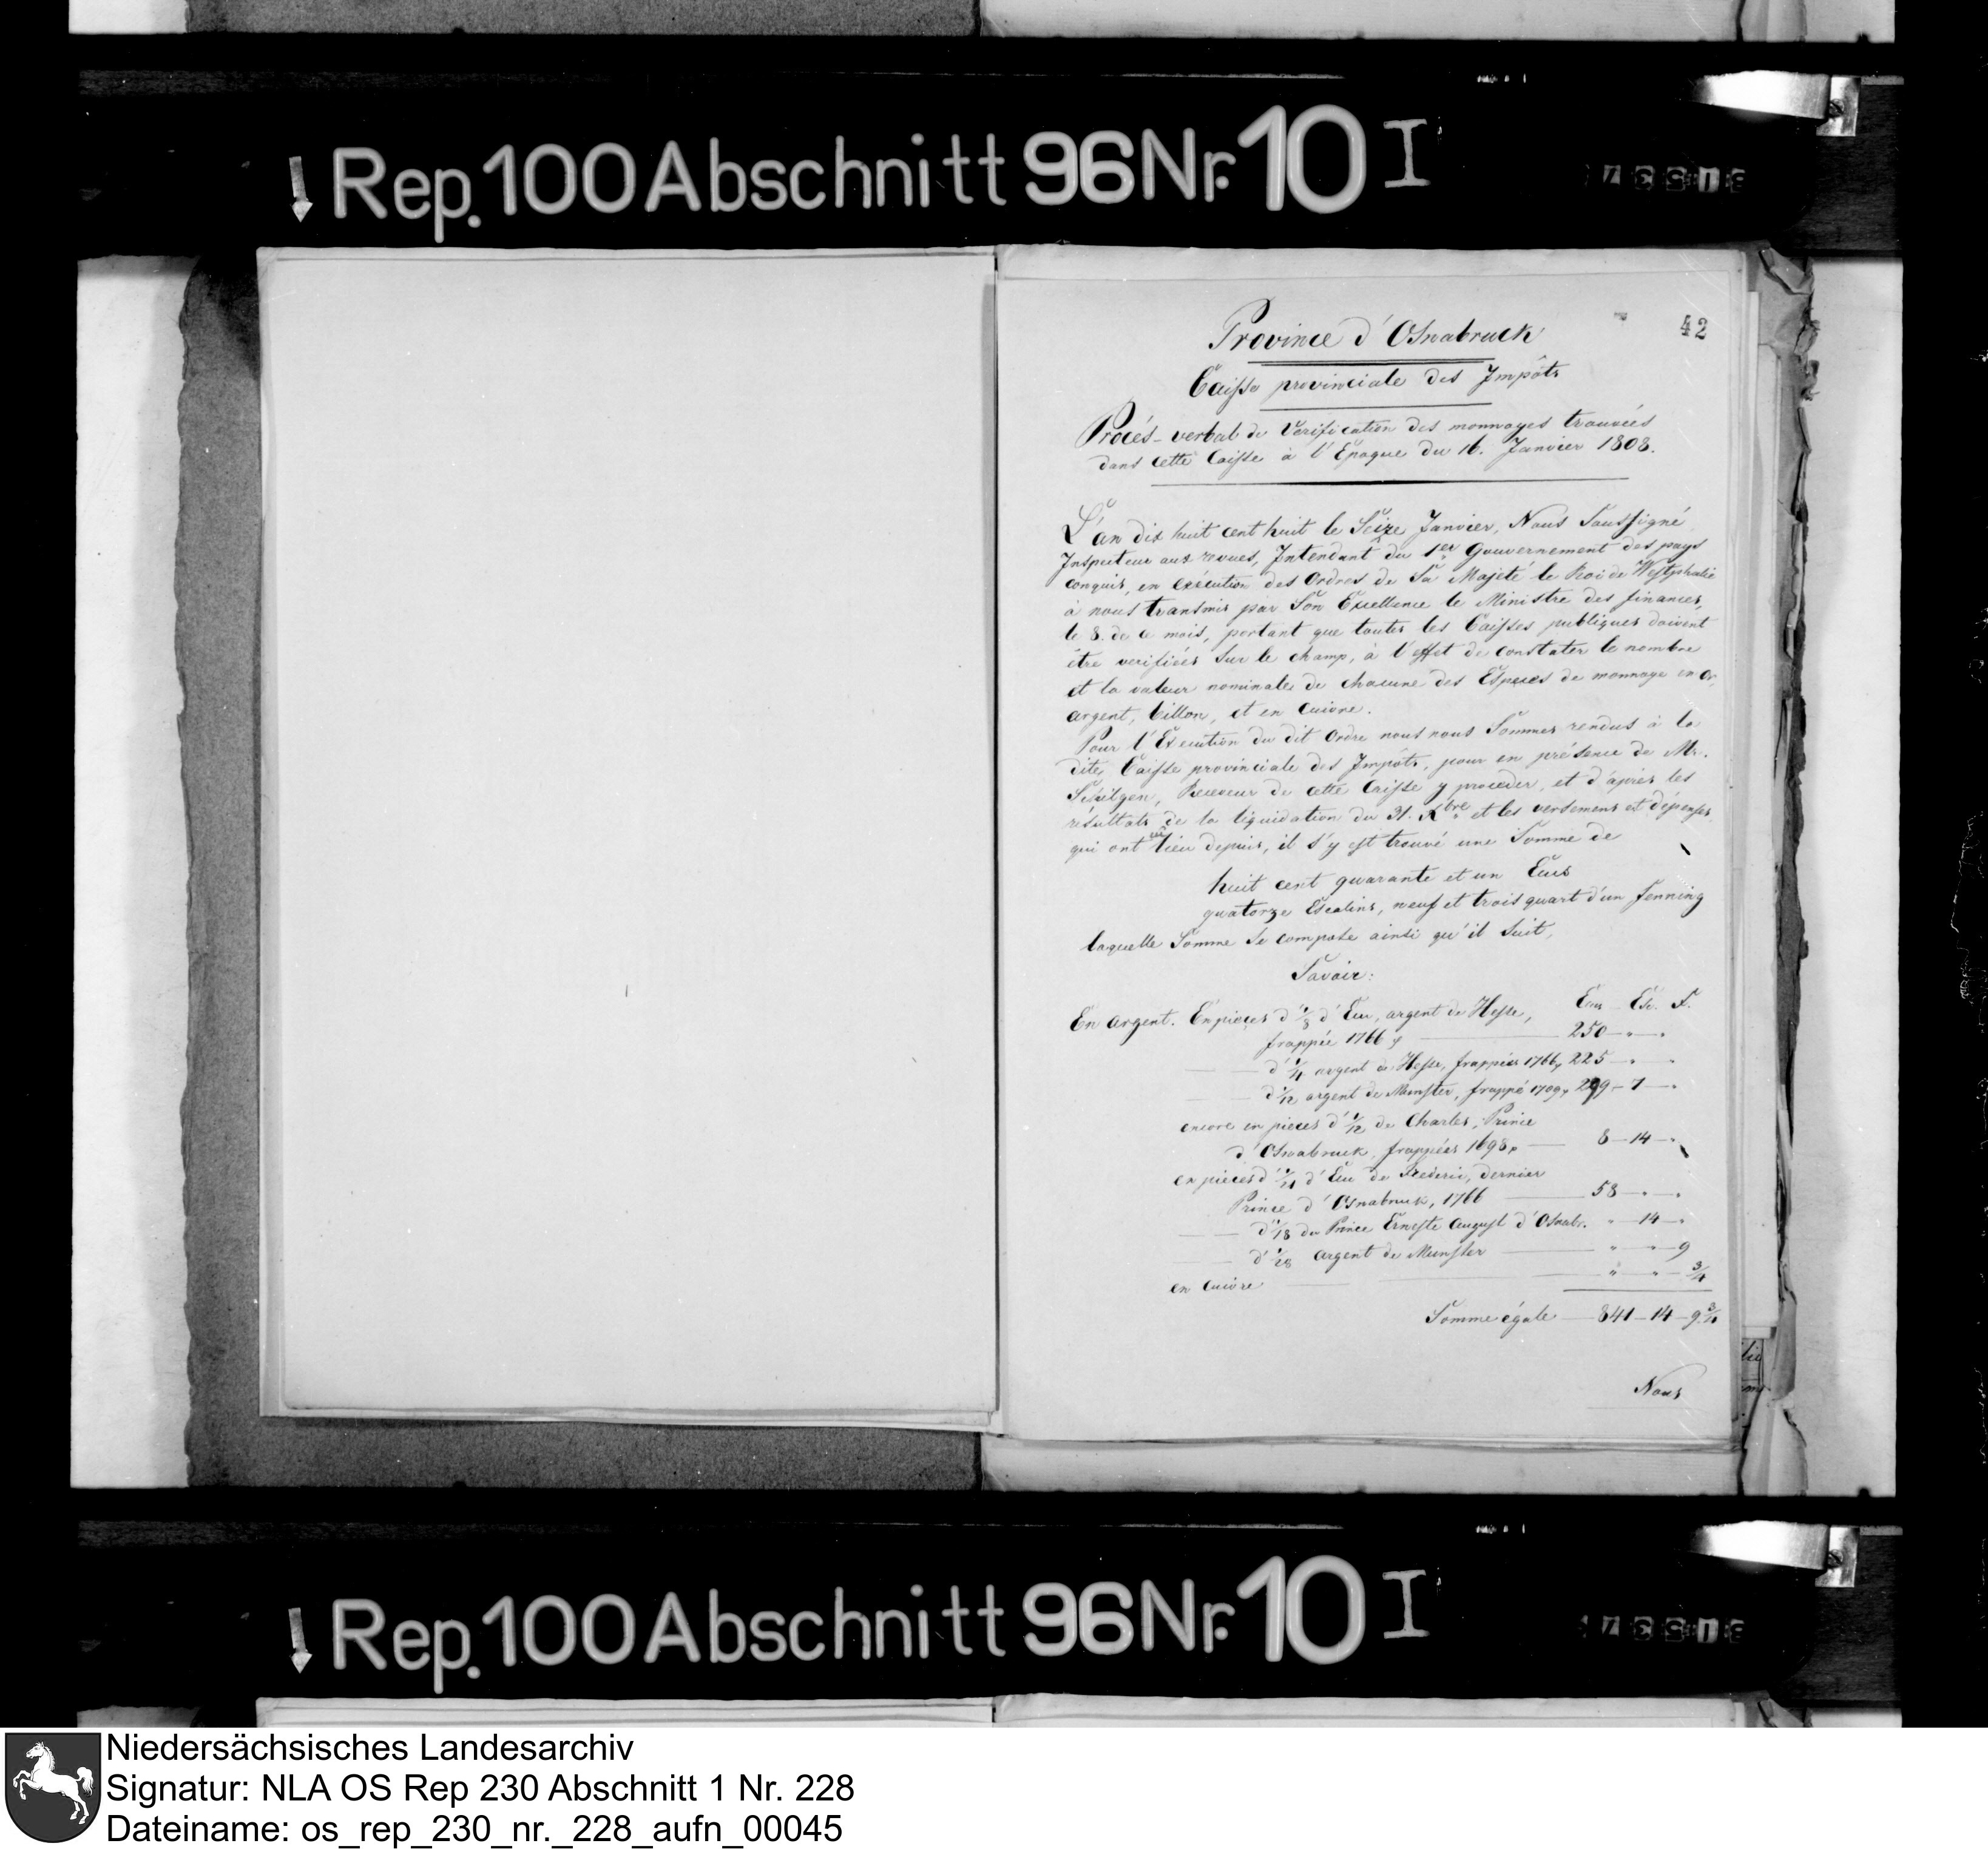 Rep. 100 Abschnitt 96 Nr. 10 I
42
Province d'Osnabruck
Caisse provinciale des Impôts
Procés-verbal de Verification des monnoyes trouvées
dans cette Caisse à l'Epoque du 16. Janvier 1808.
L'an dix huit cent huit le Seize Janvier, Nous Soussigné
Inspecteur aux revues, Intendant du 1er Gouvernement des pays
conquis, en exécution des Ordres de Sa Majeté le Roi de Westphalie
à nous transmis par Son Excellence le Ministre des finances,
le 8. de ce mois, portant que toutes les Caisses publiques doivent
être verifiées Sur le champ, à l'effet de constater le nombre
et la valeur nominale de chacune des Especes de monnaye en or,
argent, billon, et en Cuivre.
Pour l'Execution du dit Ordre nous nous Sommes rendus à la
dite Caisse provinciale des Impôts, pour en présence de Mr.
Receveur de cette Caisse y proceder, et d'aprés les
résultats de la liquidation du 31. Xbre et les versemens et dépenses
qui ont eû lieu depuis, il s'y est trouvé une Somme de
huit cent quarante et un Ecus
quatorze Escalins, neuf et trois quart d'un fenning
laquelle Somme Se compose ainsi qu'il Suit,
Savoir:
Ecus Esc. F.
En argent. En pieces d'1/8 d'Ecu, argent de Hesse,
frappée 1766 250 - " - "
d'1/4 argent de Hesse, frappées 1766, 225 - " "
d'1/12 argent de Munster, frappé 1709, 299 - 7 - "
encore en pieces d'1/12 de Charles, Prince
d'Osnabruck, frappées 1698 8 - 14 - "
en pieces d'1/21 d'Ecu de Frederic, dernier
Prince d'Osnabruck, 1766 58 - " - "
d'1/18 du Prince Erneste August d'Osnabr. " - 14 - "
d'1/28 argent de Munster " - " - 9
en Cuivre " - " - 3/4
Somme égale 841 - 14 - 9 3/4
Nous
Rep. 100 Abschnitt 96 Nr. 10 I
Niedersächsisches Landesarchiv
Signatur: NLA OS Rep 230 Abschnitt 1 Nr. 228
Dateiname: os_rep_230_nr._228_aufn_00045